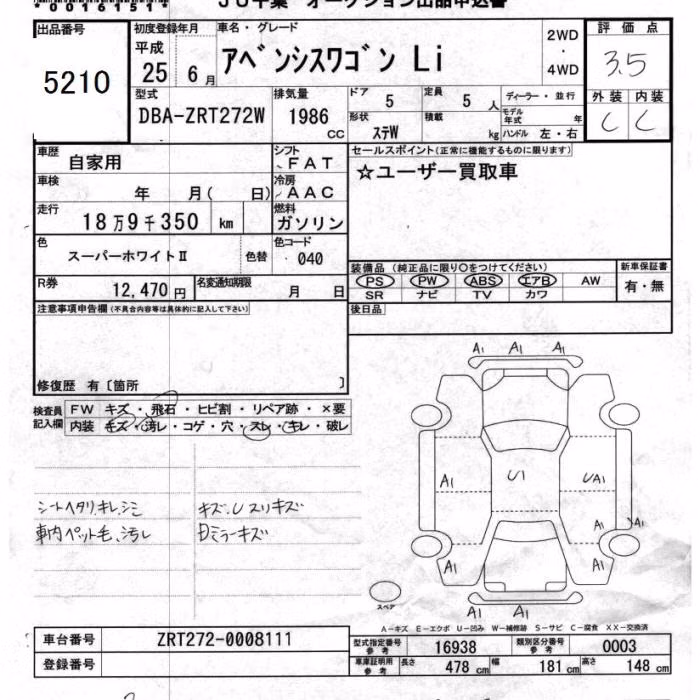 *00161514*
JU千葉 オークション出品申込書
出品番号
5210
初度登録年月
平成
25年 6月
車名・グレード
アベンシスワゴン Li
2WD
・
4WD
評価点
3.5
外装 内装
C C
型式
DBA-ZRT272W
排気量
1986
CC
ドア 5
定員 5 人
ディーラー・並行
モデル年式 年
形状 ステW
積載 kg
ハンドル 左・右
車歴
自家用
シフト
FAT
車検
年 月( 日)
冷房
AAC
走行
18万9千350 km
燃料
ガソリン
色
スーパーホワイトⅡ
色替
色コード
040
R券
12,470円
名変通知期限
月 日
セールスポイント(正常に機能するものに限ります)
☆ユーザー買取車
装備品(純正品に限り〇をつけてください)
新車保証書
PS PW ABS エアB AW
有・無
SR ナビ TV カワ
後日品
注意事項申告欄(不具合内容等は具体的に記入して下さい)
修復歴 有〔箇所 〕
検査員記入欄
FW キズ・飛石・ヒビ割・リペア跡・×要
内装 キズ・汚レ・コゲ・穴・スレ・キレ・破レ
シートヘタリ、キレ、シミ
車内ペット毛、汚レ
キズ、Uスリキズ
Dミラーキズ
A1 A1 A1
A1
A1 U1 UA1
A1 A1
A1 A1
A1 A1 A1
スペア
A-キズ E-エクボ U-凹み W-補修跡 S-サビ C-腐食 XX-交換済
車台番号 ZRT272-0008111
登録番号
型式指定番号 参考 16938
類別区分番号 参考 0003
車庫証明用 参考
長さ 478 cm 幅 181 cm 高さ 148 cm